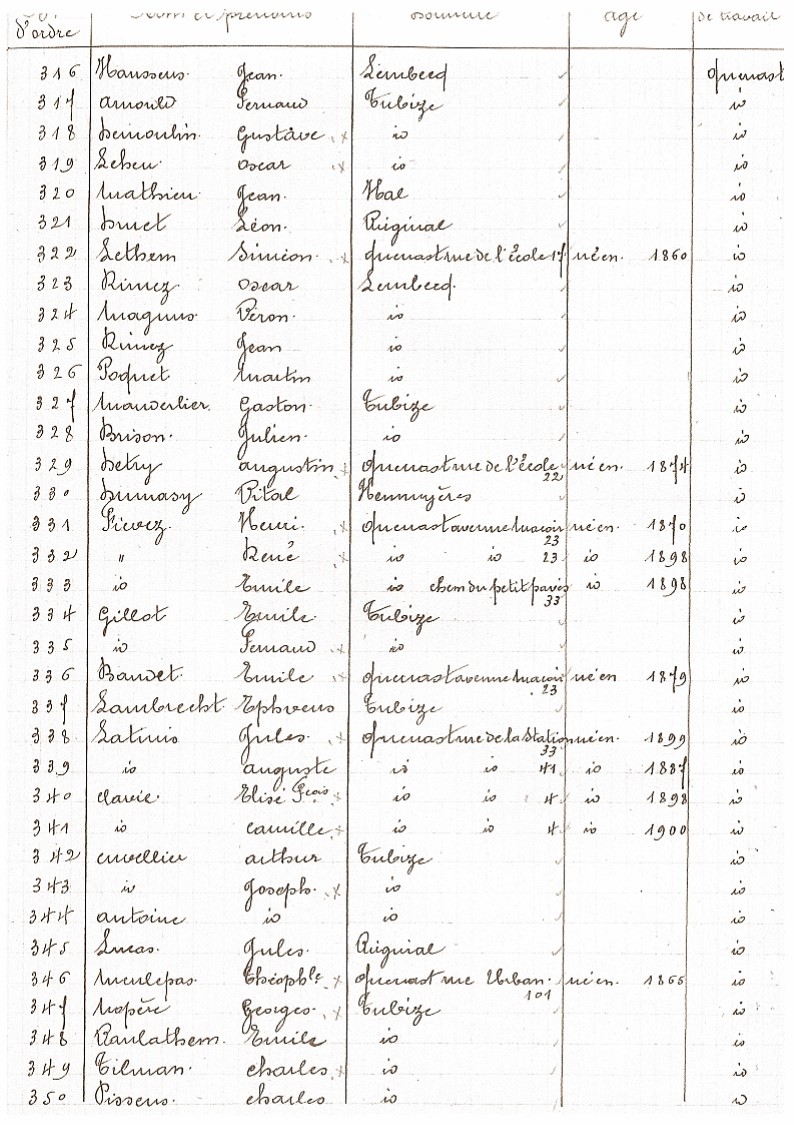 d'ordre Nom et prénoms Domicile age de travail
316 Haussens Jean. Lembecq Quenast
317 arnould Fernand Tubize io
318 Demoulin. Gustave. x io io
319 Lebeu oscar x io io
320 Mathieu Jean. Hal io
321 Druet Léon. Quignal io
322 Lethem Siméon. x Quenast rue de l'école 17 né en. 1860 io
323 Rimez oscar Lembecq. io
324 Magnus Véron. io io
325 Rimez Jean io io
326 Poquet Martin io io
327 Mauverlier. Gaston. Tubize io
328 Brison. Julien. io io
329 Detry augustin x Quenast rue de l'école 22 né en. 1874 io
330 Dumasy Vital Hennuyères io
331 Fievez. Henri. x Quenast avenue 23 né en. 1870 io
332 " René x io io 23 io 1898 io
333 io Emile io chem du petit pavés 33 io 1898 io
334 Gillot Emile Tubize io
335 io Fernand x io io
336 Bauvet. Emile x Quenast avenue 23 né en 1879 io
337 Lambrecht Ephrens Tubize io
338 Latinis Jules. x Quenast rue de la Station 33 né en. 1899 io
339 io auguste io io 41 io 1887 io
340 clavie. Elisé Fçois x io io 4 io 1898 io
341 io camille x io io 4 io 1900 io
342 cuvellier arthur Tubize io
343 io Joseph. x io io
344 antoine io io io
345 Lucas. Jules. Quignal io
346 Meulepas. Théophle x Quenast rue Urban. 101 né en. 1865 io
347 Nopère Georges. x Tubize io
348 Raulathem. Emile io io
349 Tilman. charles x io io
350 Pissens. charles io io